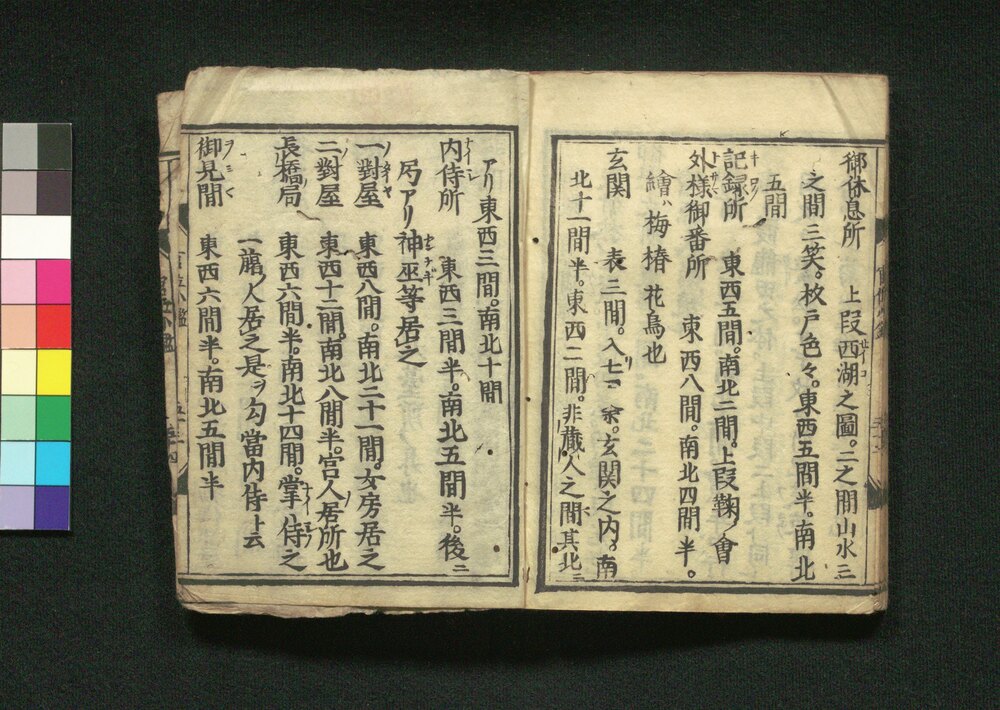 御休息所 上段西湖之圖。二之間山水三
之間三笑。杦戸色々。東西五間半。南北
五間
記録所 東西五間。南北二間。上段鞠ノ會
外様御番所 東西八間。南北四間半。
繪ハ梅椿花鳥也
玄関 表三間。入七 余。玄関之内。南
北。十一間半。東西二間。非蔵人之間其北ニ
アリ東西三間。南北十間
内侍所 東西三間半。南北五間半。後ニ
アリ神巫等居之
一對屋 東西八間。南北二十一間。女房居之
二對屋 東西十二間。南北八間半。宮人居所也
長橋局 東西六間半。南北十四間。掌侍之
一﨟ノ人居之是ヲ勾當内侍ト云
御見間 東西六間半。南北五間半